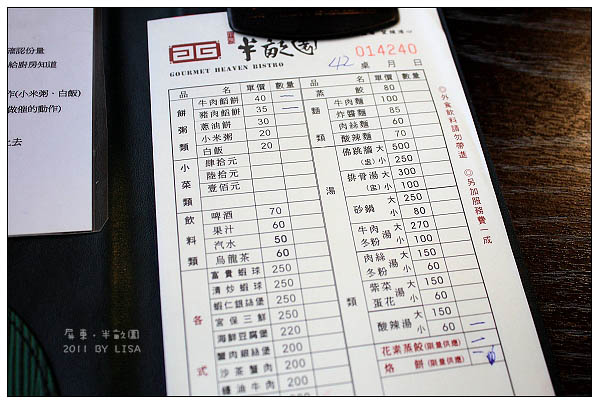 確認份量
給廚房知道
作(小米粥、白飯)
做催的動作)
上去
半畝園
GOURMET HEAVEN BISTRO
014240
42 桌 月 日
品 名 單價 數量
餅粥類
牛肉餡餅 40 一
豬肉餡餅 35 一
蔥油餅 30
小米粥 20
白飯 20
小菜類
肆拾元
陸拾元
壹佰元
飲料類
啤酒 70
果汁 60
汽水 50
烏龍茶 60
各式
富貴蝦球 250
清炒蝦球 250
蝦仁銀絲堡 250
宮保三鮮 250
海鮮豆腐堡 220
蟹肉銀絲堡 200
沙茶蟹肉 200
蠔油牛肉 200
品 名 單價 數量
蒸餃 80
麵類
牛肉麵 100
炸醬麵 85
肉絲麵 60
酸辣麵 70
湯類
佛跳牆 大 500
(盅) 小 250
排骨湯 大 300
(盅) 小 100
砂鍋 大 250
小 80
牛肉多粉湯 大 270
小 100
肉絲多粉湯 大 150
小 60
紫菜蛋花湯 大 150
小 60
酸辣湯 大 150
小 60 一
花素蒸餃(限量供應) 二
烙餅(限量供應)
◎外食飲料請勿帶進 ◎另加服務費一成
屏東·半畝園
2011 BY LISA